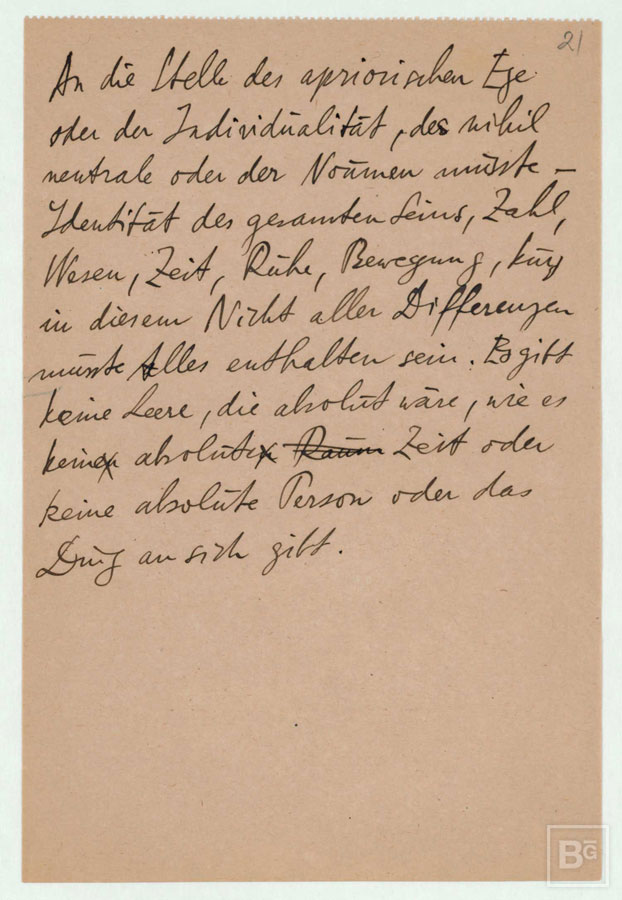 21
An die Stelle des apriorischen Ego
oder der Individualität, des nihil
neutrale oder der Noumen müsste –
Identität des gesamten Seins, Zahl,
Wesen, Zeit, Ruhe, Bewegung, kurz
in diesem Nicht aller Differenzen
müsste Alles enthalten sein. Es gibt
keine Leere, die absolut wäre, wie es
keine absolute Raum Zeit oder
keine absolute Person oder das
Ding an sich gibt.
BG